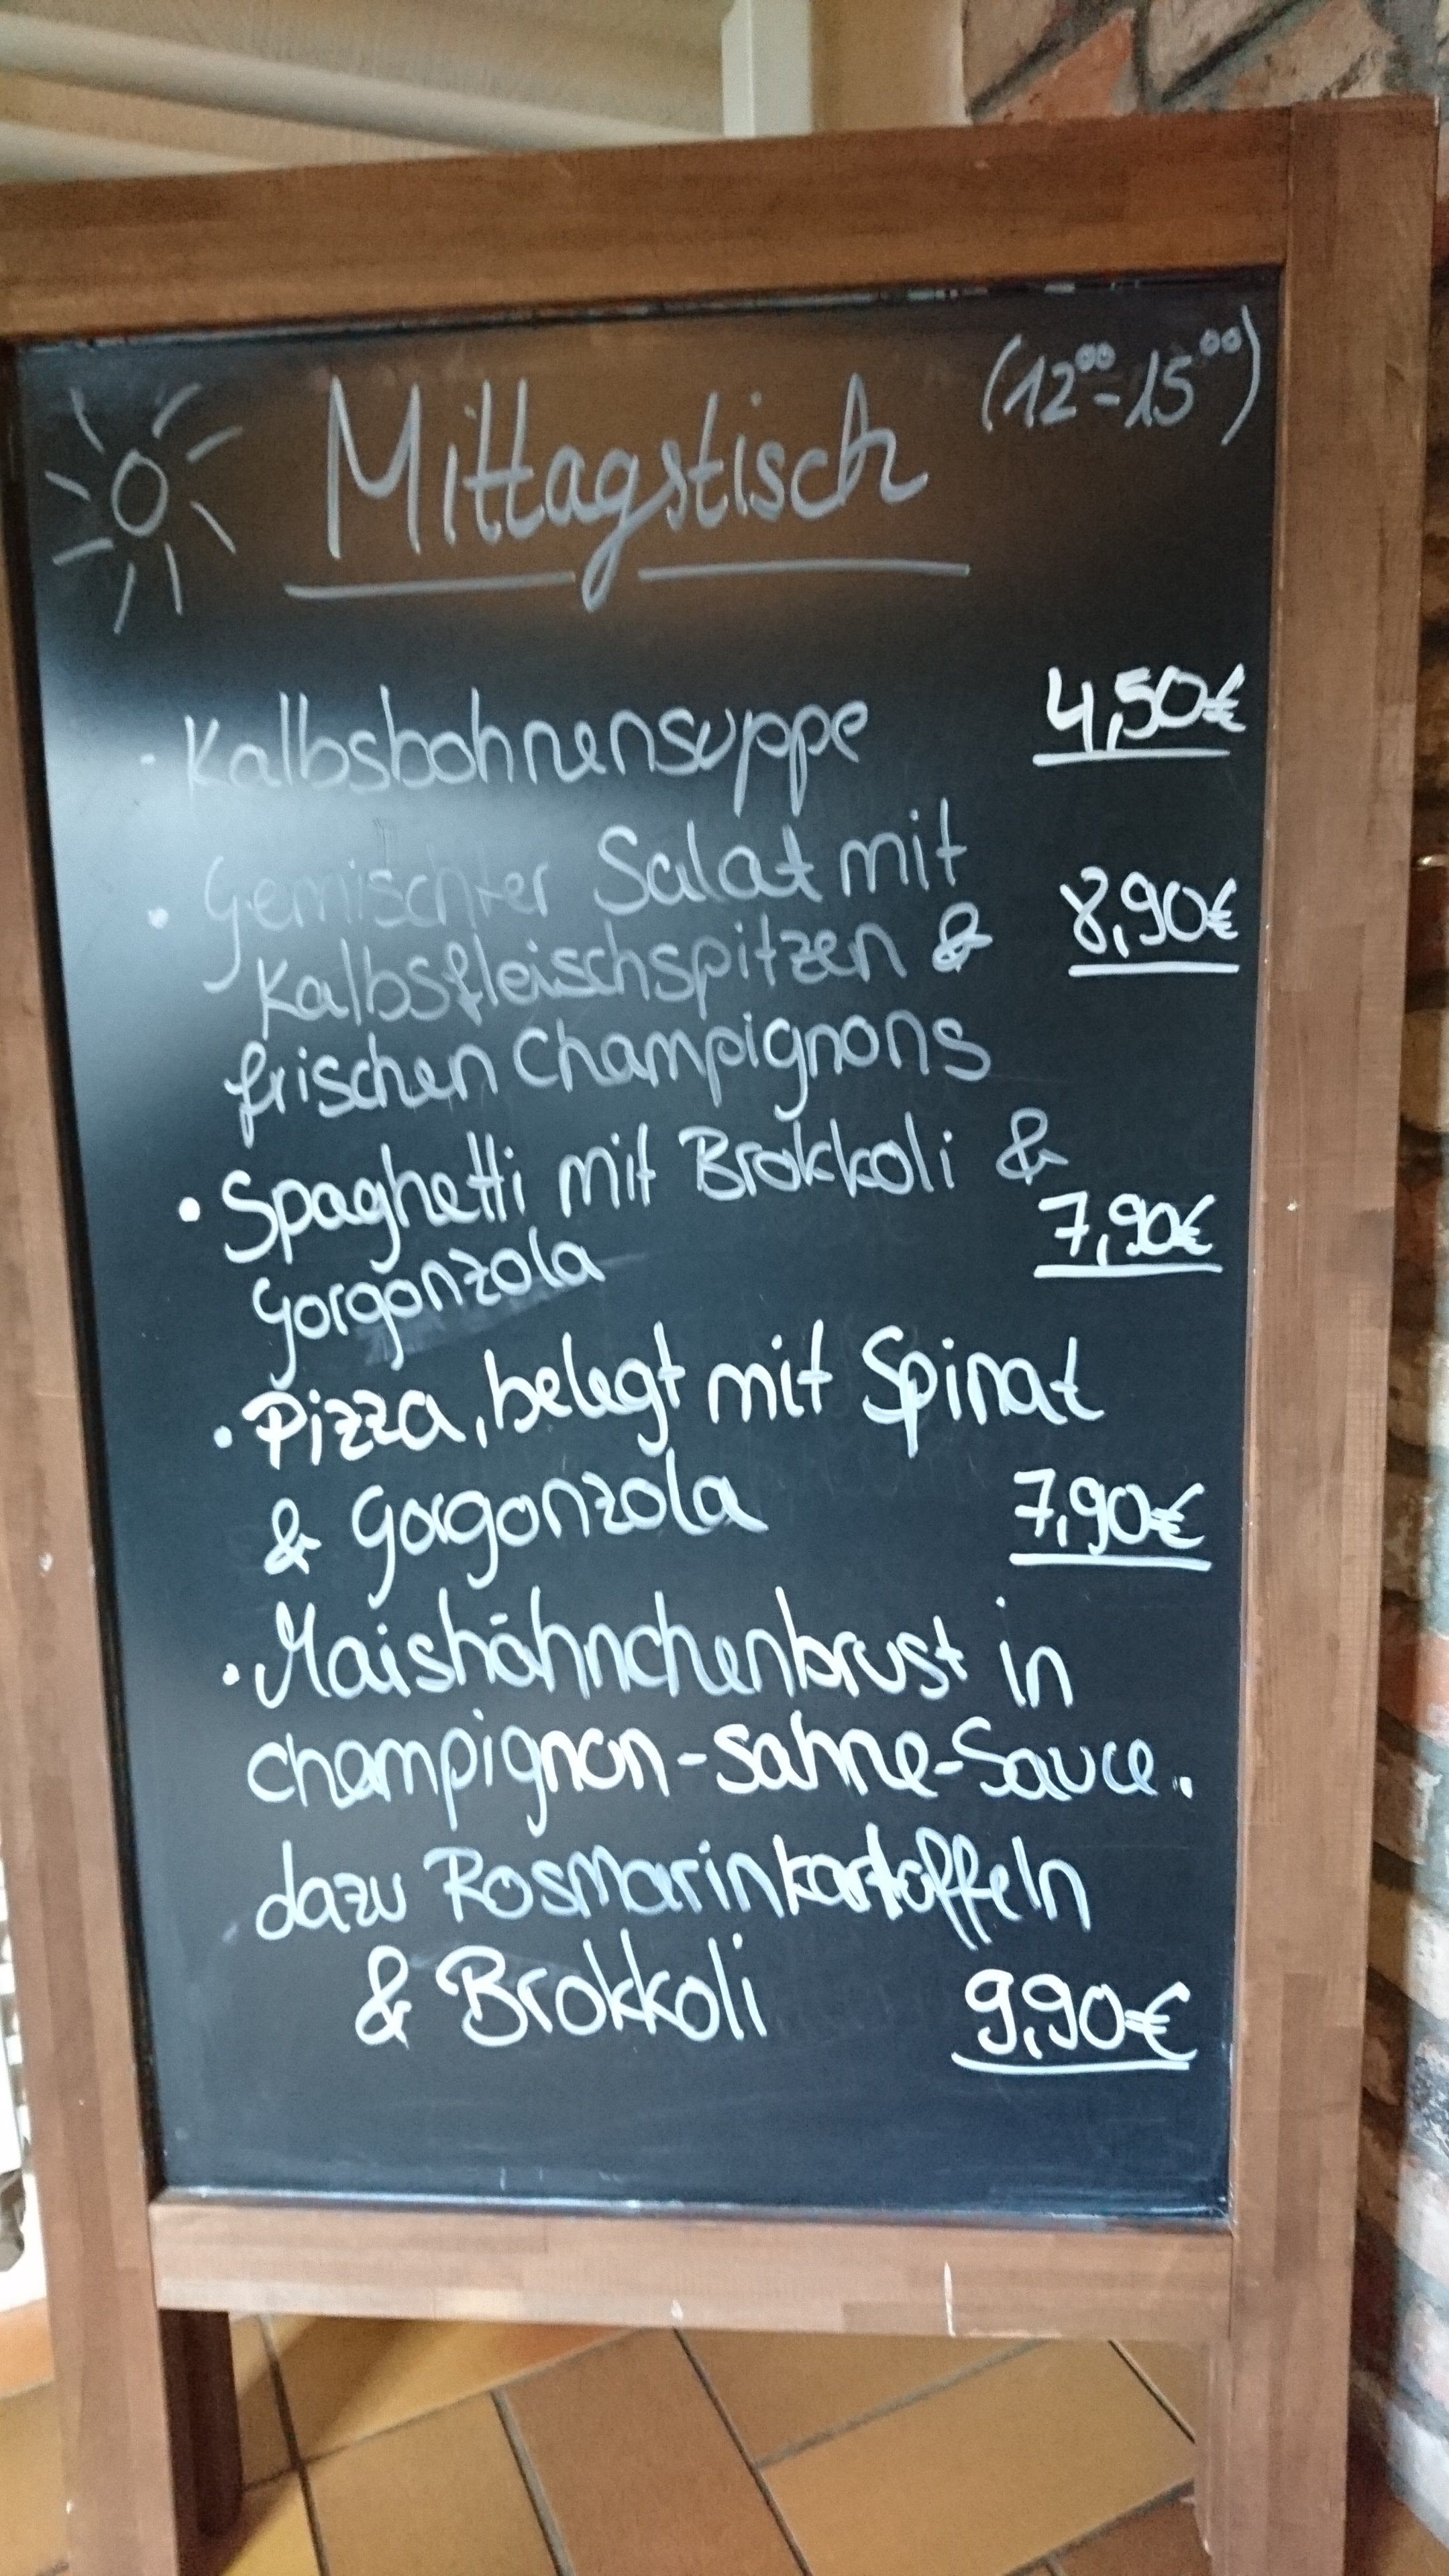 Mittagstisch (12⁰⁰-15⁰⁰)
· Kalbsbohnensuppe 4,50€
· Gemischter Salat mit
Kalbsfleischspitzen & 8,90€
frischen Champignons
· Spaghetti mit Brokkoli &
Gorgonzola 7,90€
· Pizza, belegt mit Spinat
& Gorgonzola 7,90€
· Maishähnchenbrust in
champignon-Sahne-Sauce.
dazu Rosmarinkartoffeln
& Brokkoli 9,90€